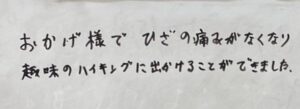 おかげ様で ひざの痛みがなくなり
趣味のハイキングに出かけることができました.